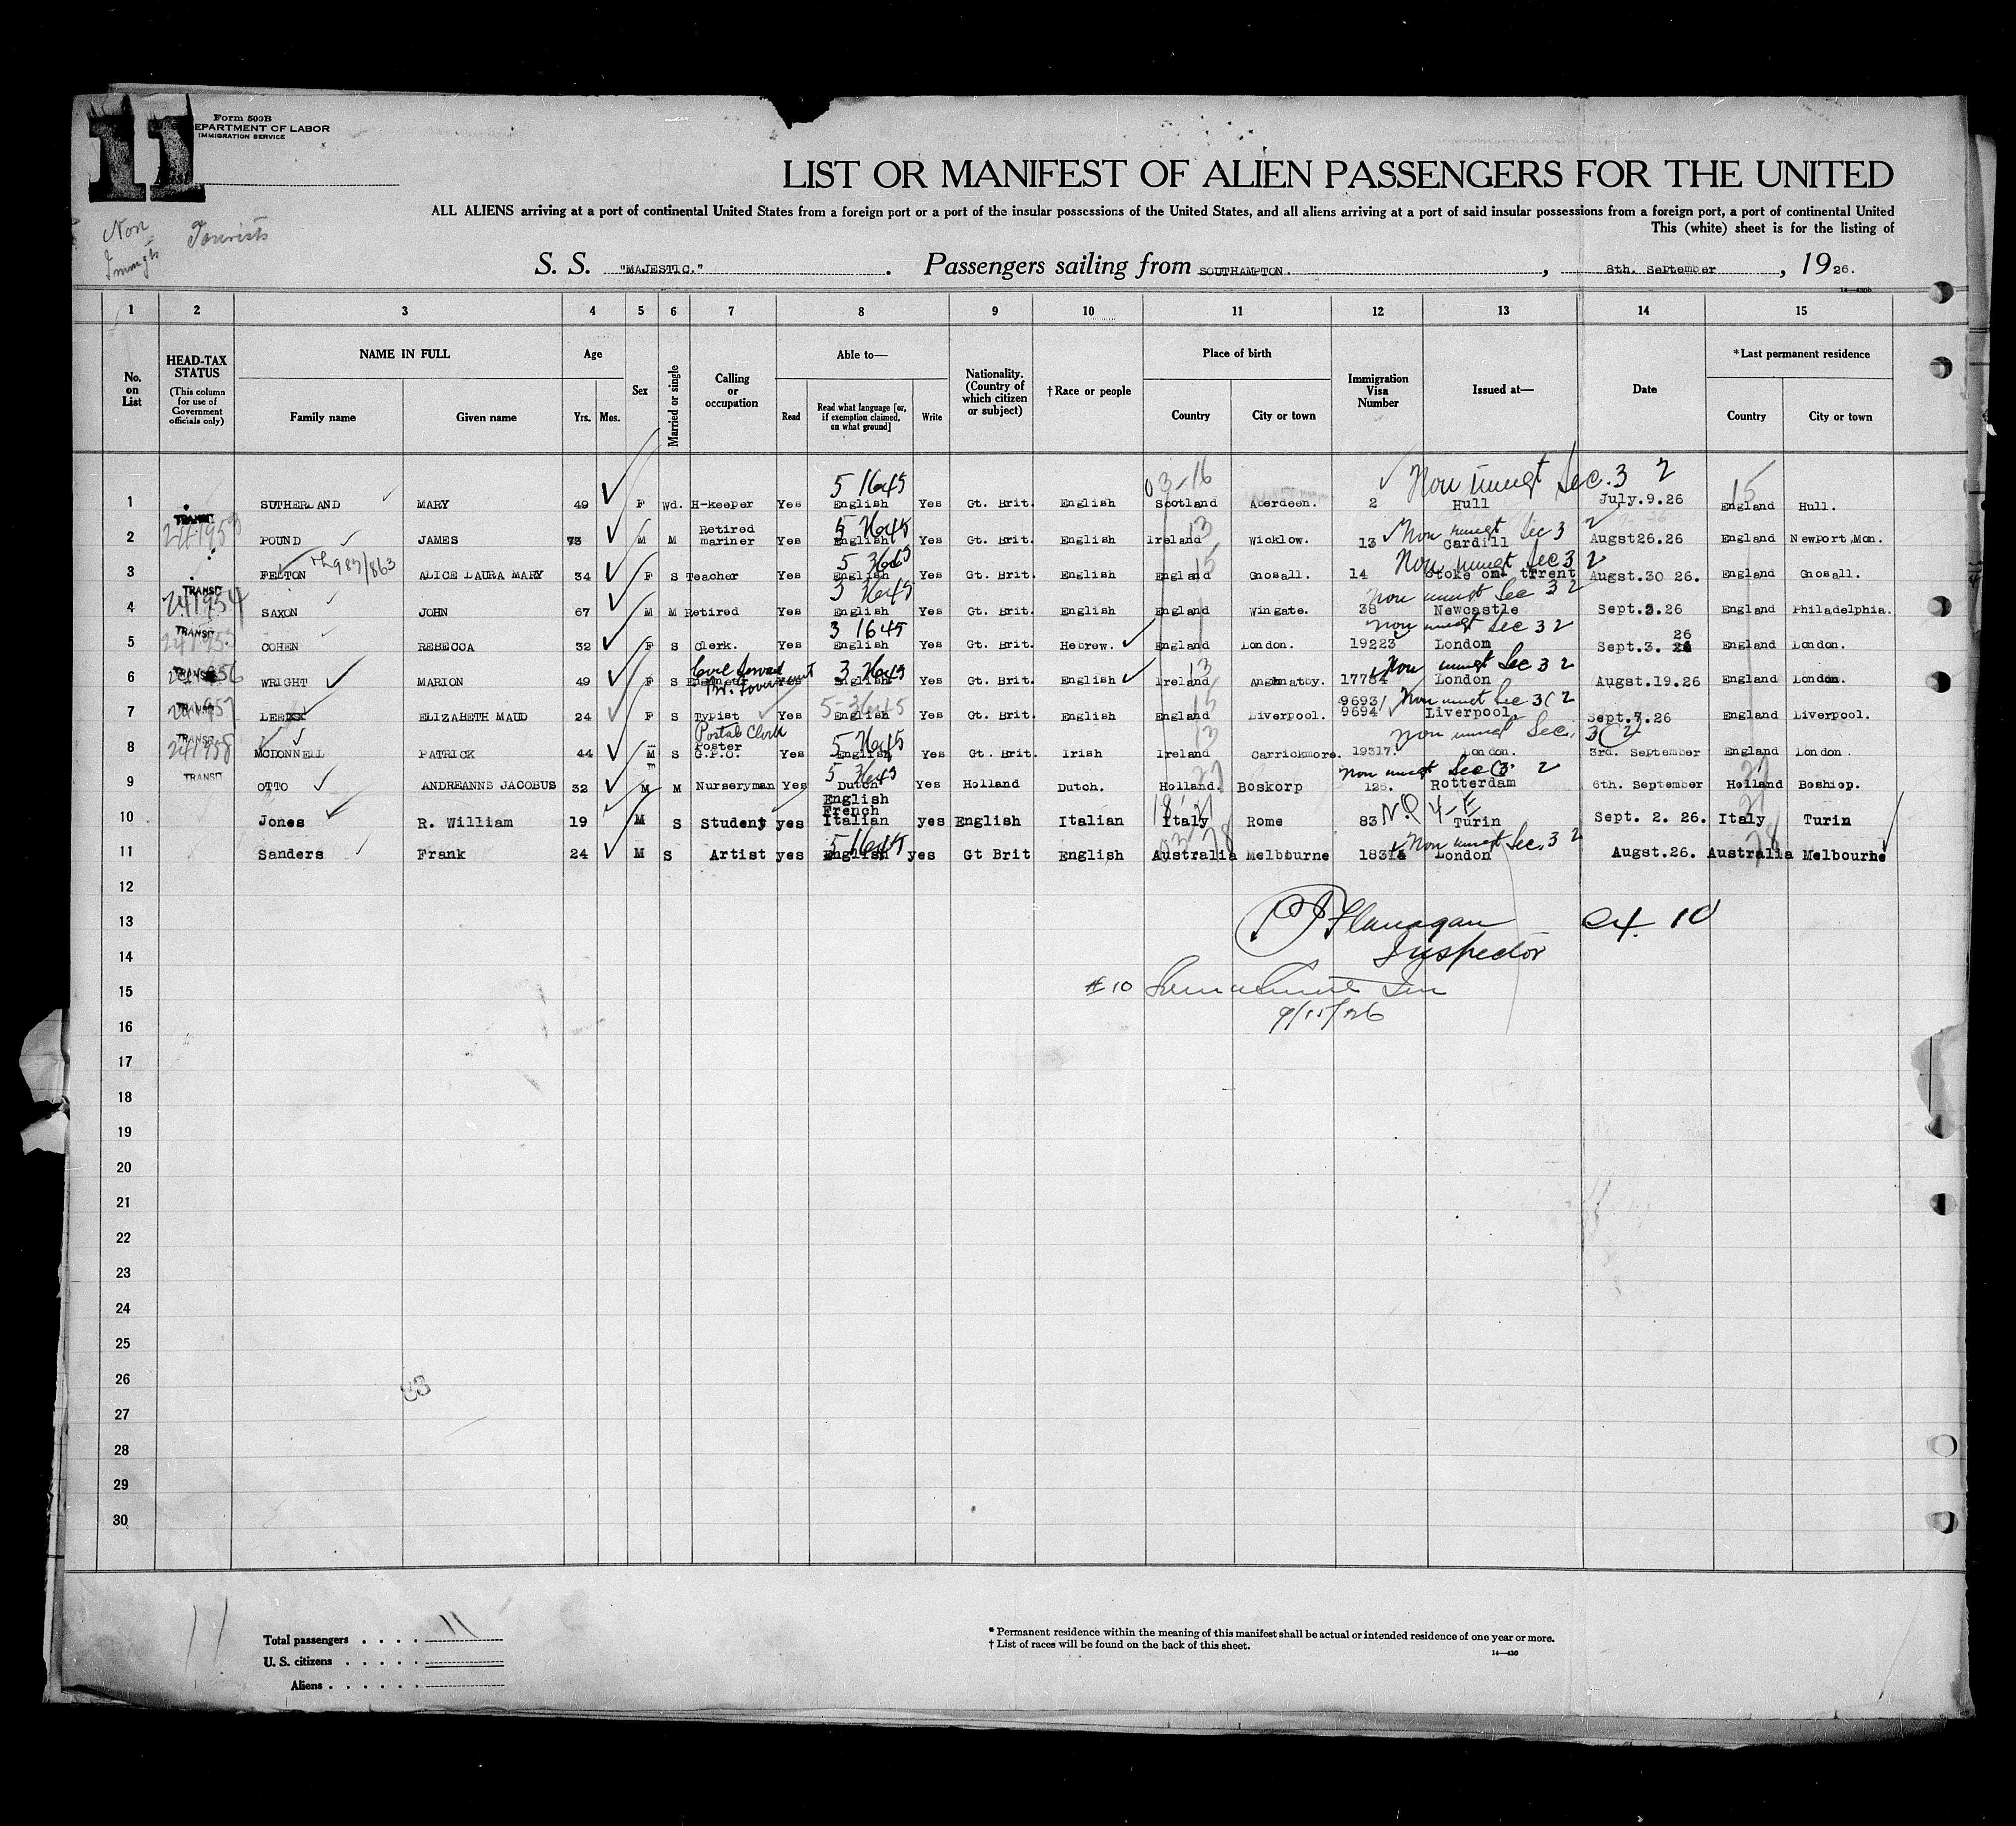 11
Form 500B
DEPARTMENT OF LABOR
IMMIGRATION SERVICE
Non Immgts Tourists
LIST OR MANIFEST OF ALIEN PASSENGERS FOR THE UNITED
ALL ALIENS arriving at a port of continental United States from a foreign port or a port of the insular possessions of the United States, and all aliens arriving at a port of said insular possessions from a foreign port, a port of continental United
This (white) sheet is for the listing of
S. S. "MAJESTIC." Passengers sailing from SOUTHAMPTON. , 8th. September , 1926.
1 2 3 4 5 6 7 8 9 10 11 12 13 14 15
No. on List HEAD-TAX STATUS (This column for use of Government officials only) NAME IN FULL Family name Given name Age Yrs. Mos. Sex Married or single Calling or occupation Able to— Read Read what language [or, if exemption claimed, on what ground] Write Nationality. (Country of which citizen or subject) †Race or people Place of birth Country City or town Immigration Visa Number Issued at— Date *Last permanent residence Country City or town
5 1645 03-16 Non immgt Sec. 3 2 15
1 SUTHERLAND MARY 49 F Wd. H-keeper Yes English Yes Gt. Brit. English Scotland Aberdeen. 2 Hull July.9.26 England Hull.
TRANSIT 5 3645 13 Non immgt Sec 3 2
2 POUND JAMES 73 M M Retired mariner Yes English Yes Gt. Brit. English Ireland Wicklow. 13 Cardiff Augst26.26 England Newport,Mon.
5 3645 15 Non immgt Sec 3 2
3 FELTON ALICE LAURA MARY 34 F S Teacher Yes English Yes Gt. Brit. English England Gnosall. 14 Stoke on trent Augst.30 26. England Gnosall.
TRANSIT 241954 3 3645 Non immgt Sec 3 2
4 SAXON JOHN 67 M M Retired Yes English Yes Gt. Brit. English England Wingate. 38 Newcastle Sept.3.26 England Philadelphia.
TRANSIT 3 1645 Non immgt Sec 3 2
5 COHEN REBECCA 32 F S Clerk. Yes English Yes Gt. Brit. Hebrew. England London. 19223 London Sept.3. 26 England London.
TRANSIT Civil Servant Br. Government 3 3645 13 Non immgt Sec 3 2
6 WRIGHT MARION 49 F S Yes English Yes Gt. Brit. English Ireland London Augst.19.26 England London.
TRANSIT 241957 5-3645 15 9693/ Non immgt Sec 3( 2
7 ELIZABETH MAUD 24 F S Typist Yes English Yes Gt. Brit. English England Liverpool. 9694 Liverpool. Sept.7.26 England Liverpool.
TRANSIT 241958 Postal Clerk 5 3645 13 Non immgt Sec. 3( 2
8 MCDONNELL PATRICK 44 M S Poster G.P.O. Yes English Yes Gt. Brit. Irish Ireland Carrickmore. 19317. London. 3rd. September England London.
TRANSIT 5 3645 27 Non immgt Sec 3 2 27
9 OTTO ANDREANNS JACOBUS 32 M M Nurseryman Yes Dutch Yes Holland Dutch. Holland. Boskorp 125. Rotterdam 6th. September Holland Boshiop.
10 Jones R. William 19 M S Student yes English French Italian yes English Italian Italy Rome 83 N.Q. 4-E Turin Sept. 2. 26. Italy Turin
5 1645 03 78 Non immgt Sec. 3 2 78
11 Sanders Frank 24 M S Artist yes English yes Gt Brit English Australia Melbourne London Augst.26. Australia Melbourne
12
13 Flanagan 10
14 Inspector
15 #10
16 9/15/26
17
18
19
20
21
22
23
24
25
26 33
27
28
29
30
11
Total passengers . . . . 11
U. S. citizens . . . . .
Aliens . . . . . .
* Permanent residence within the meaning of this manifest shall be actual or intended residence of one year or more.
† List of races will be found on the back of this sheet.
14—430